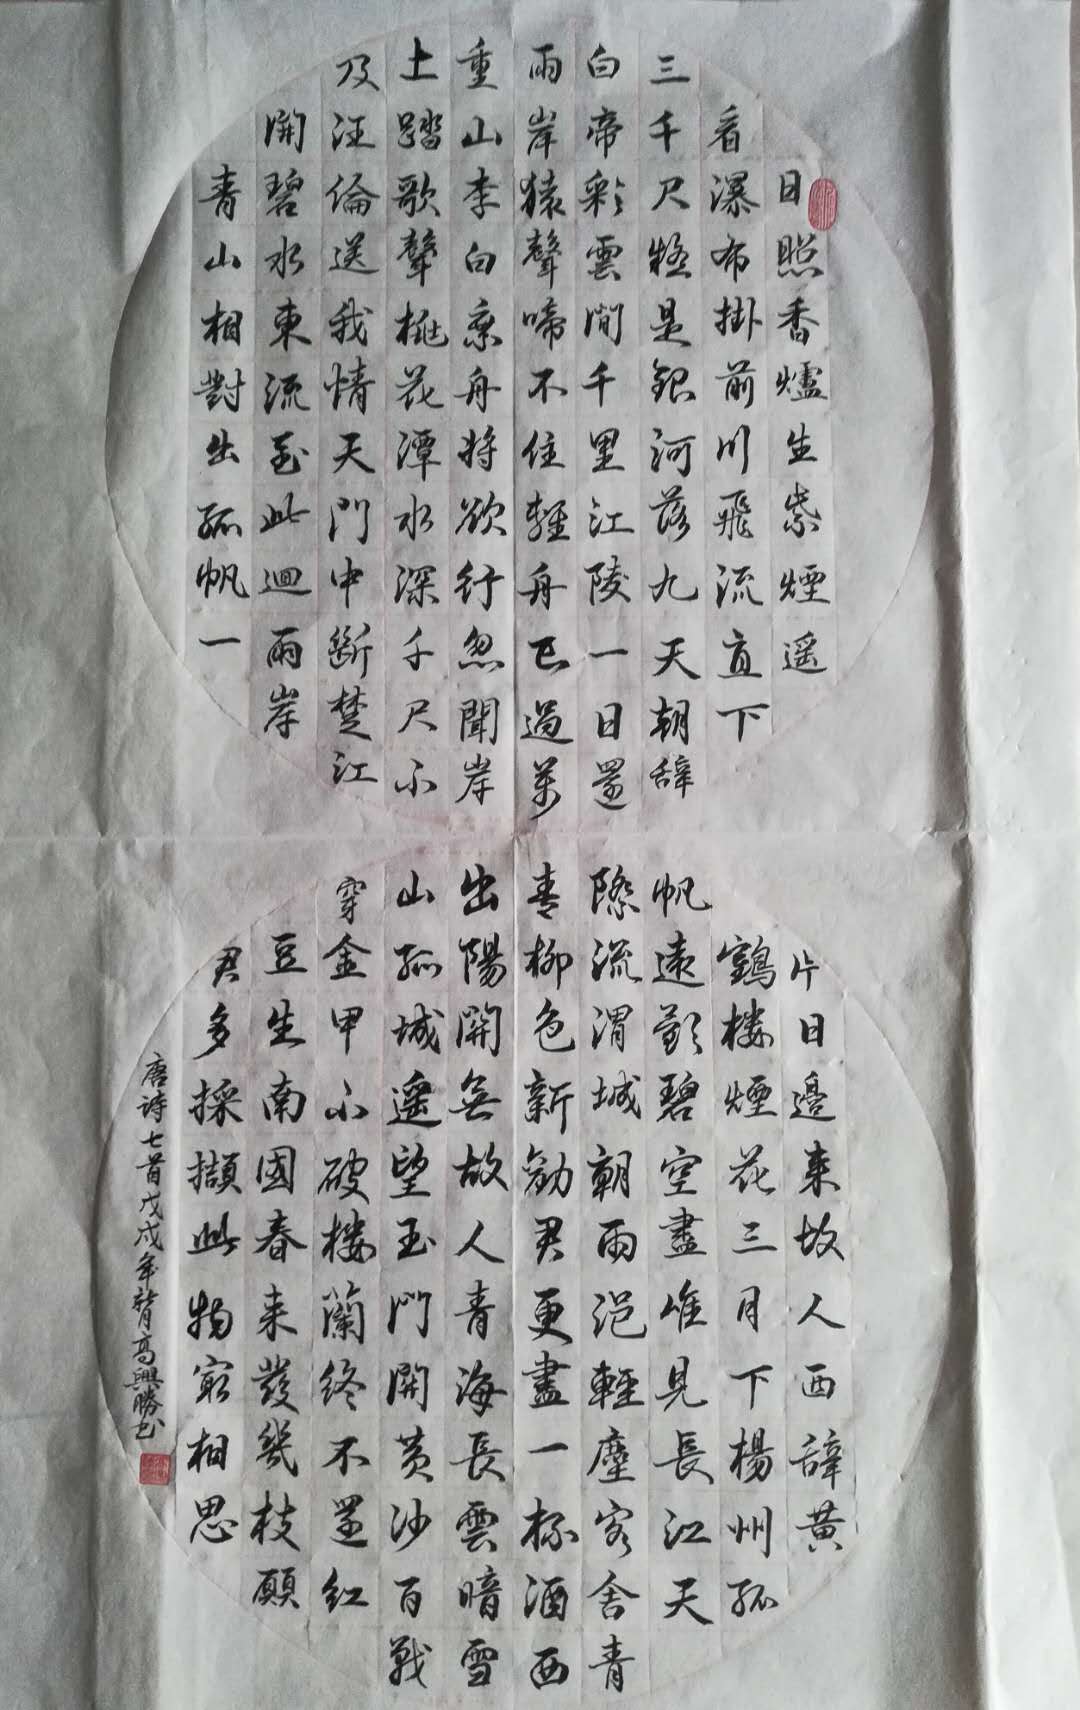 日照香爐生紫煙遥
看瀑布掛前川飛流直下
三千尺疑是銀河落九天朝辞
白帝彩雲間千里江陵一日還
兩岸猿聲啼不住輕舟已過萬
重山李白乘舟将欲行忽聞岸
土踏歌聲桃花潭水深千尺不
及汪倫送我情天門中斷楚江
開碧水東流至此迴兩岸
青山相對出孤帆一
片日邊来故人西辞黄
鶴楼煙花三月下楊州孤
帆遠影碧空盡唯見長江天
際流渭城朝雨浥輕塵客舍青
青柳色新勸君更盡一杯酒西
出陽關無故人青海長雲暗雪
山孤城遥望玉門關黄沙百戰
穿金甲不破楼蘭終不還紅
豆生南國春来發幾枝願
君多採擷此物最相思
唐詩七首戊戌年高興勝书